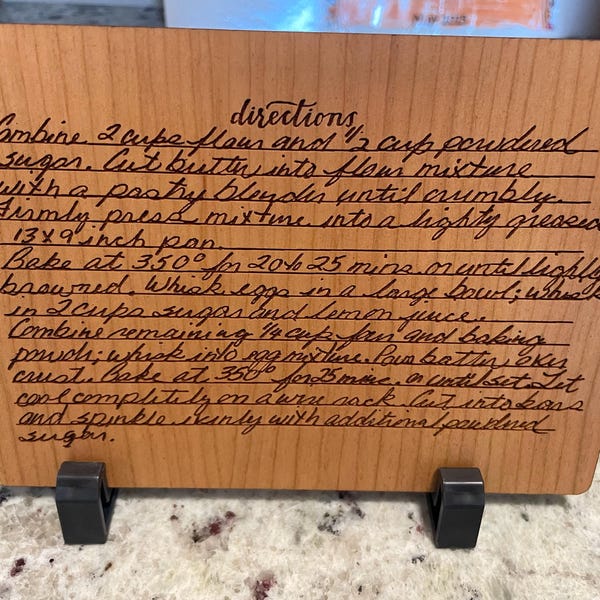 directions
Combine 2 cups flour and 1/2 cup powdered
sugar. Cut butter into flour mixture
with a pastry blender until crumbly.
Firmly press mixture into a lighty greased
13x9 inch pan.
Bake at 350° for 20 to 25 mins. or until lightly
browned. Whisk eggs in a large bowl; whisk
in 2 cups sugar and lemon juice.
Combine remaining 1/4 cup flour and baking
powder; whisk into egg mixture. Pour batter over
crust. Bake at 350° for 25 mins. or until set. Let
cool completely on a wire rack. Cut into bars
and spinkle with additional powdered
sugar.